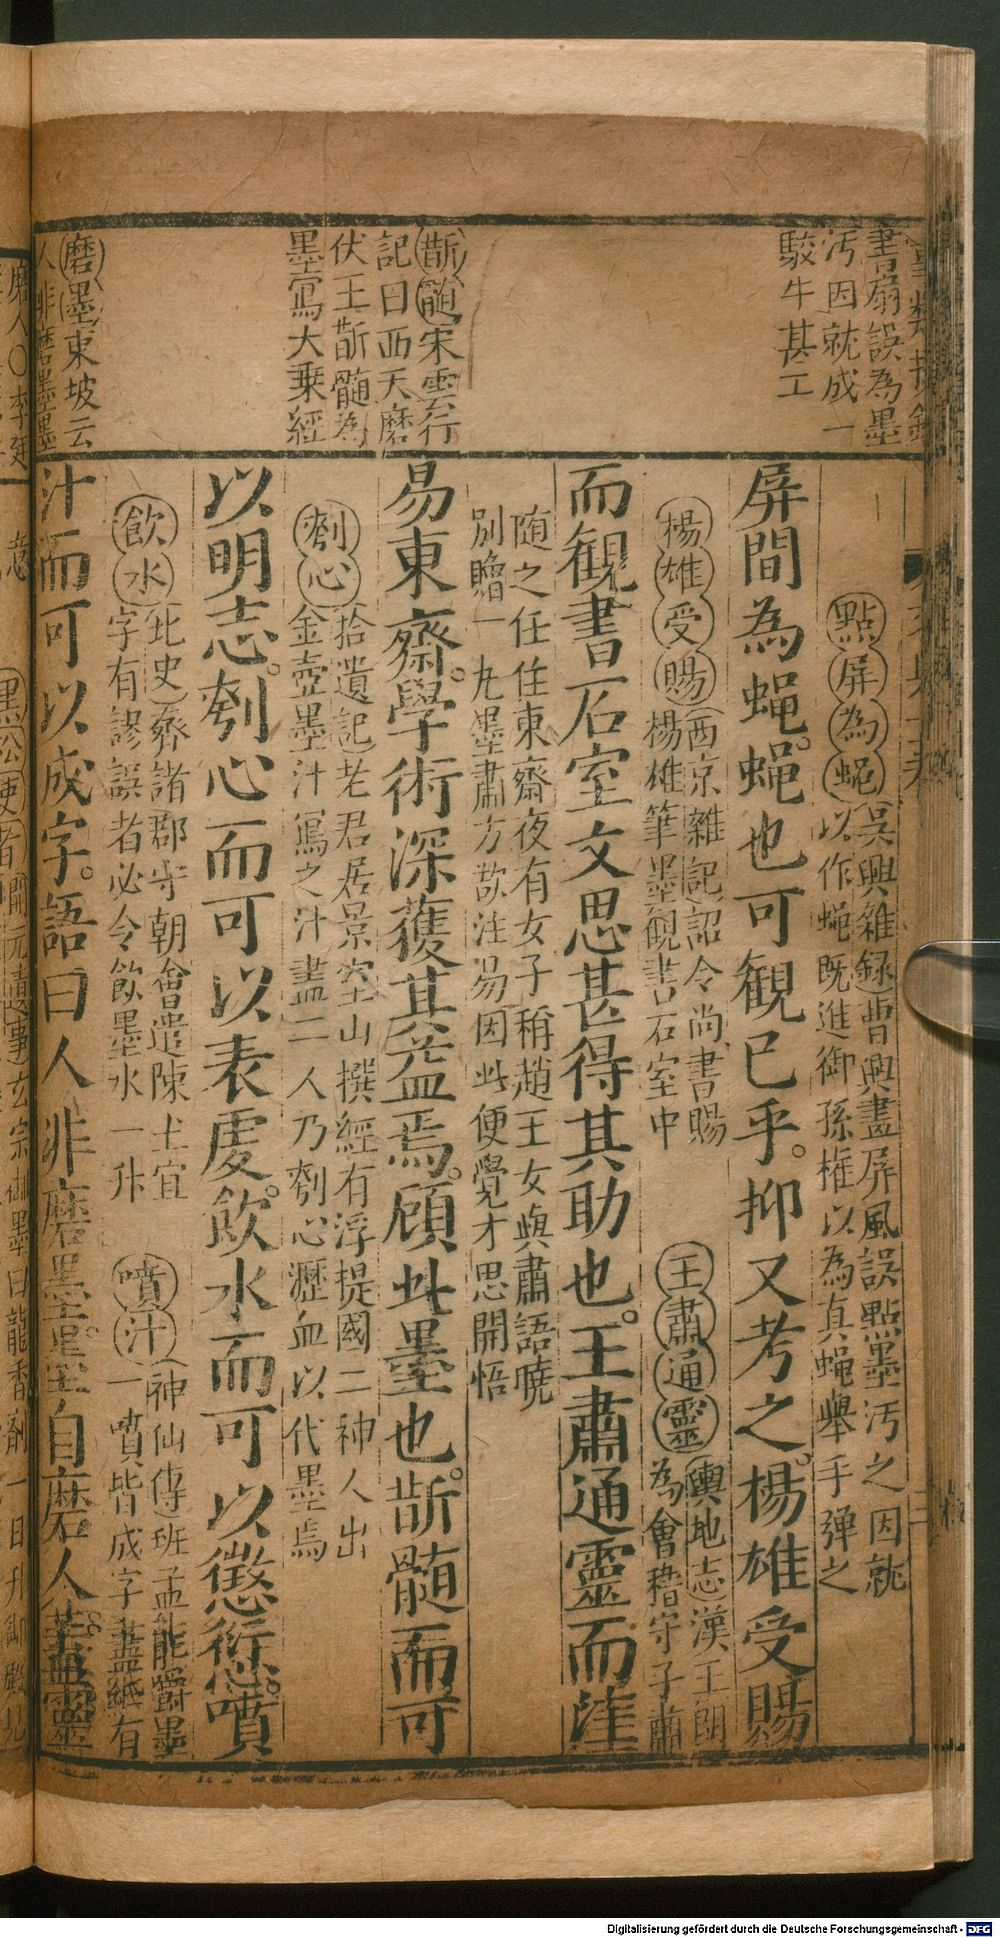 書扇誤為墨
汚因就成一
駮牛甚工
斮髄宋雲行
記曰西天磨
伏王斮髓為
墨寫大乗經
磨墨東坡云
人非磨墨墨
點屏為蝇吳興雜録曹興畫屏風誤點墨汚之因就
以作蝇既進御孫権以為真蝇舉手弹之
屏間為蝇蝇也可観已乎。抑又考之。楊雄受賜
楊雄受賜西京雜記詔令尚書賜
楊雄筆墨観書石室中
王肅通靈輿地志漢王朗
為會稽守子肅
而観書石室文思甚得其助也。王肅通靈而
随之任住東齋夜有女子稱趙王女與肅語曉
別贈一丸墨肅方欲注易因此便覺才思開悟
易東齋。學術深獲其益焉。頋此墨也。斮髄而可
刳心拾遺記老君居景室山撰經有浮提國二神人出
金壺墨汁寫之汁盡二人乃刳心瀝血以代墨焉
以明志。刳心而可以表虔。飲水而可以懲愆。噴
飲水北史齊諸郡守朝會遣陳土宜
字有謬誤者必令飲墨水一升
噴汁神仙傳班孟能嚼墨
一噴皆成字盡紙有
汁而可以成字。語曰人非磨墨。墨自磨人。蓋靈
磨人〇李廷
墨松使者開元清
玄宗御墨曰龍香劑一日升御殿見
意
Digitalisierung gefördert durch die Deutsche Forschungsgemeinschaft - DFG